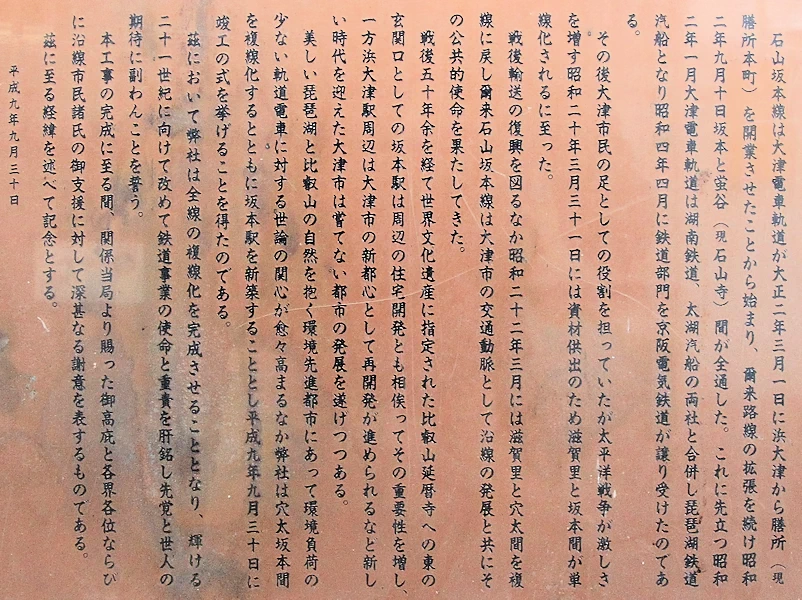 石山坂本線は大津電車軌道が大正二年三月一日に浜大津から膳所（現
膳所本町）を開業させたことから始まり、爾来路線の拡張を続け昭和
二年九月十日坂本と蛍谷（現石山寺）間が全通した。これに先立つ昭和
二年一月大津電車軌道は湖南鉄道、太湖汽船の両社と合併し琵琶湖鉄道
汽船となり昭和四年四月に鉄道部門を京阪電気鉄道が譲り受けたのであ
る。
その後大津市民の足としての役割を担っていたが太平洋戦争が激しさ
を増す昭和二十年三月三十一日には資材供出のため滋賀里と坂本間が単
線化されるに至った。
戦後輸送の復興を図るなか昭和二十二年三月には滋賀里と穴太間を複
線に戻し爾来石山坂本線は大津市の交通動脈として沿線の発展と共にそ
の公共的使命を果たしてきた。
戦後五十年余を経て世界文化遺産に指定された比叡山延暦寺への東の
玄関口としての坂本駅は周辺の住宅開発とも相俟ってその重要性を増し、
一方浜大津駅周辺は大津市の新都心として再開発が進められるなど新し
い時代を迎えた大津市は嘗てない都市の発展を遂げつつある。
美しい琵琶湖と比叡山の自然を抱く環境先進都市にあって環境負荷の
少ない軌道電車に対する世論の関心が愈々高まるなか弊社は穴太坂本間
を複線化するとともに坂本駅を新築することとし平成九年九月三十日に
竣工の式を挙げることを得たのである。
茲において弊社は全線の複線化を完成させることとなり、輝ける
二十一世紀に向けて改めて鉄道事業の使命と重責を肝銘し先覚と世人の
期待に副わんことを誓う。
本工事の完成に至る間、関係当局より賜った御高庇と各界各位ならび
に沿線市民諸氏の御支援に対して深甚なる謝意を表するものである。
茲に至る経緯を述べて記念とする。
平成九年九月三十日